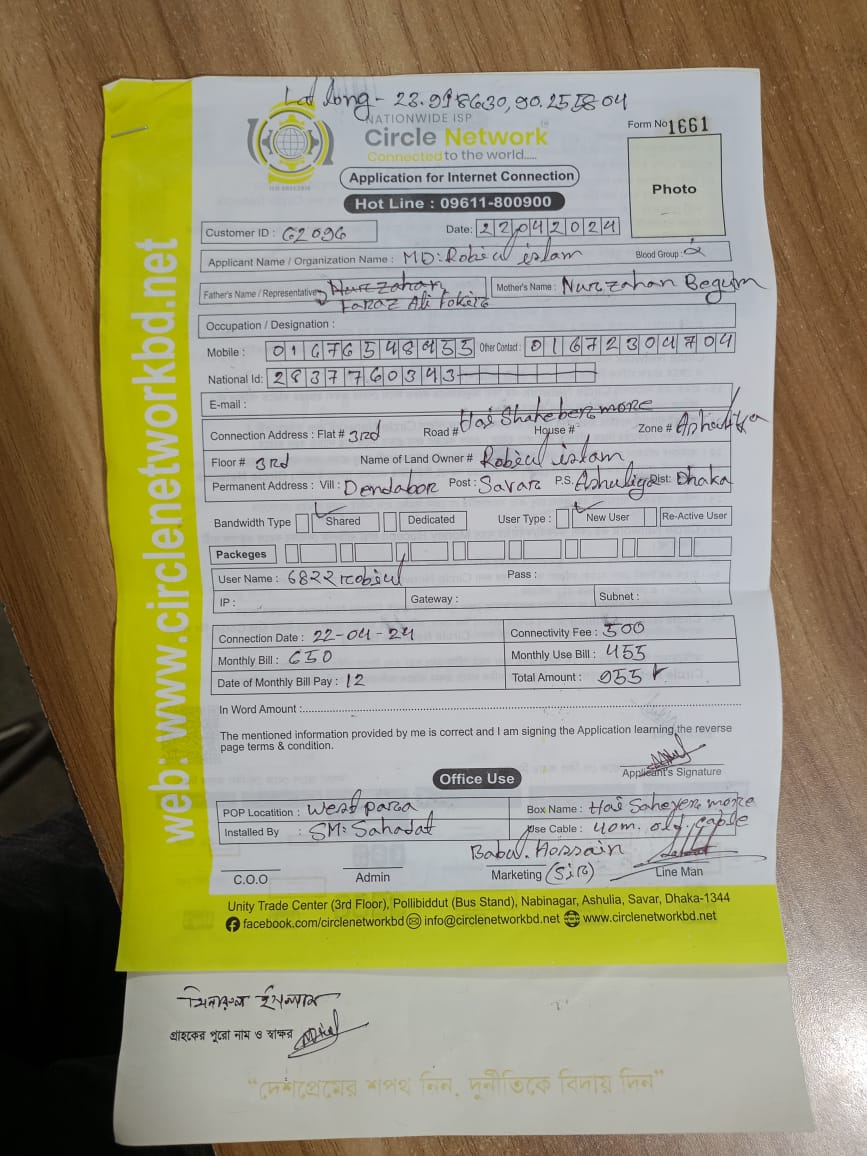 Lat long - 23.918630, 90.255804
NATIONWIDE ISP
Circle Network
Connected to the world.....
Form No 1661
Application for Internet Connection
Photo
Hot Line : 09611-800900
Customer ID : 62096 Date: 22042024
Applicant Name / Organization Name : MD: Robiul islam Blood Group :
Father's Name / Representative Nurzahan Mother's Name : Nurzahan Begum
Faraz Ali Fokir
Occupation / Designation :
Mobile : 01676548955 Other Contact : 01672304704
National Id: 2837760343
E-mail :
Connection Address : Flat # 3rd Road # Hai Shaheber more House # Zone # Ashulia
Floor # 3rd Name of Land Owner # Robiul islam
Permanent Address : Vill : Dendabor Post : Savar P.S. Ashuliya Dist: Dhaka
Bandwidth Type Shared Dedicated User Type : New User Re-Active User
Packeges
User Name : 6822robiul Pass :
IP : Gateway : Subnet :
Connection Date : 22-04-24 Connectivity Fee : 500
Monthly Bill : 650 Monthly Use Bill : 455
Date of Monthly Bill Pay : 12 Total Amount : 955
In Word Amount :
The mentioned information provided by me is correct and I am signing the Application learning the reverse
page terms & condition.
Applicant's Signature
Office Use
POP Locatition : West para Box Name : Hai Saheyer more
Installed By : SM: Sahadat Use Cable : 40m. old. cable
Babul. Hossain
C.O.O Admin Marketing (SiB) Line Man
Unity Trade Center (3rd Floor), Pollibiddut (Bus Stand), Nabinagar, Ashulia, Savar, Dhaka-1344
facebook.com/circlenetworkbd info@circlenetworkbd.net www.circlenetworkbd.net
web: www.circlenetworkbd.net
ইসলাম
গ্রাহকের পুরো নাম ও স্বাক্ষর
“দেশপ্রেমের শপথ নিন, দুর্নীতিকে বিদায় দিন”